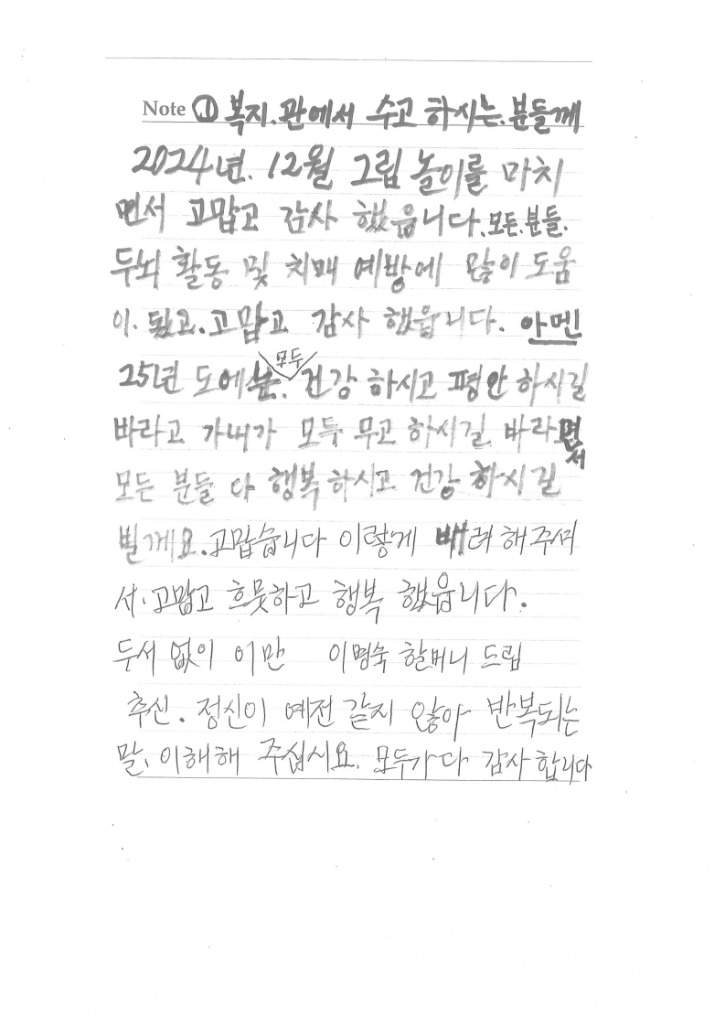 Note ① 복지.관에서 수고 하시는.분들께
2024년. 12월 그림 놀이를 마치
면서 고맙고 감사 했읍니다.모든.분들.
두뇌 활동 및 치매 예방에 많이 도움
이. 됬고.고맙고 감사 했읍니다. 아멘
25년 도에 모두 건강 하시고 평안 하시길
바라고 가내가 모두 무고 하시길 바라면서
모든 분들 다 행복 하시고 건강 하시길
빌께요.고맙습니다 이렇게 배려 해주셔
서.고맙고 흐뭇하고 행복 했읍니다.
두서 없이 이만 이명숙 할머니 드림
추신. 정신이 예전 같지 않아 반복되는
말, 이해해 주십시요. 모두가 다 감사 합니다